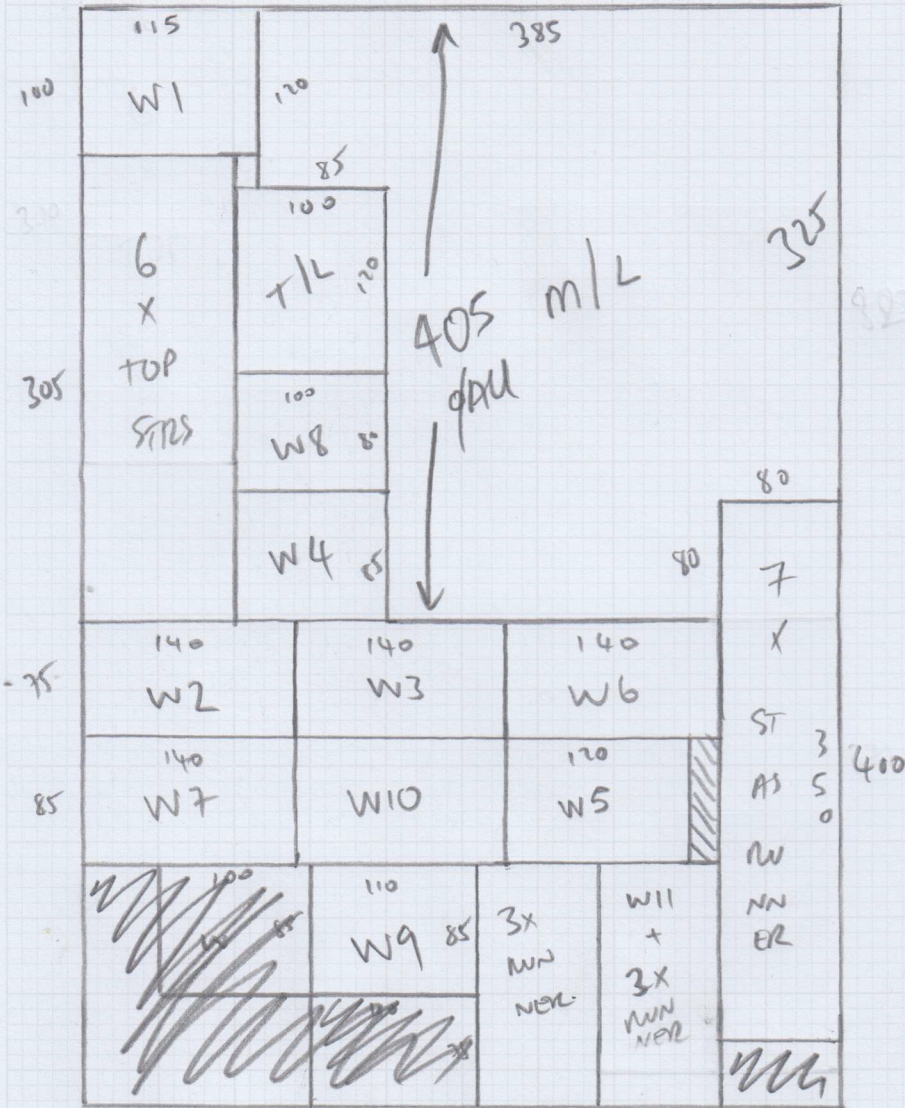 115
385
100
W1
120
85
100
T/L
120
6
X
TOP
STRS
305
325
405 m/L
100
W8 80
W4 85
80
80
7
X
ST
AS
RU
NN
ER
350
400
75
140
W2
140
W3
140
W6
85
140
W7
W10
120
W5
100
85
110
W9 85
3X
RUN
NER
W11
+
3X
RUN
NER